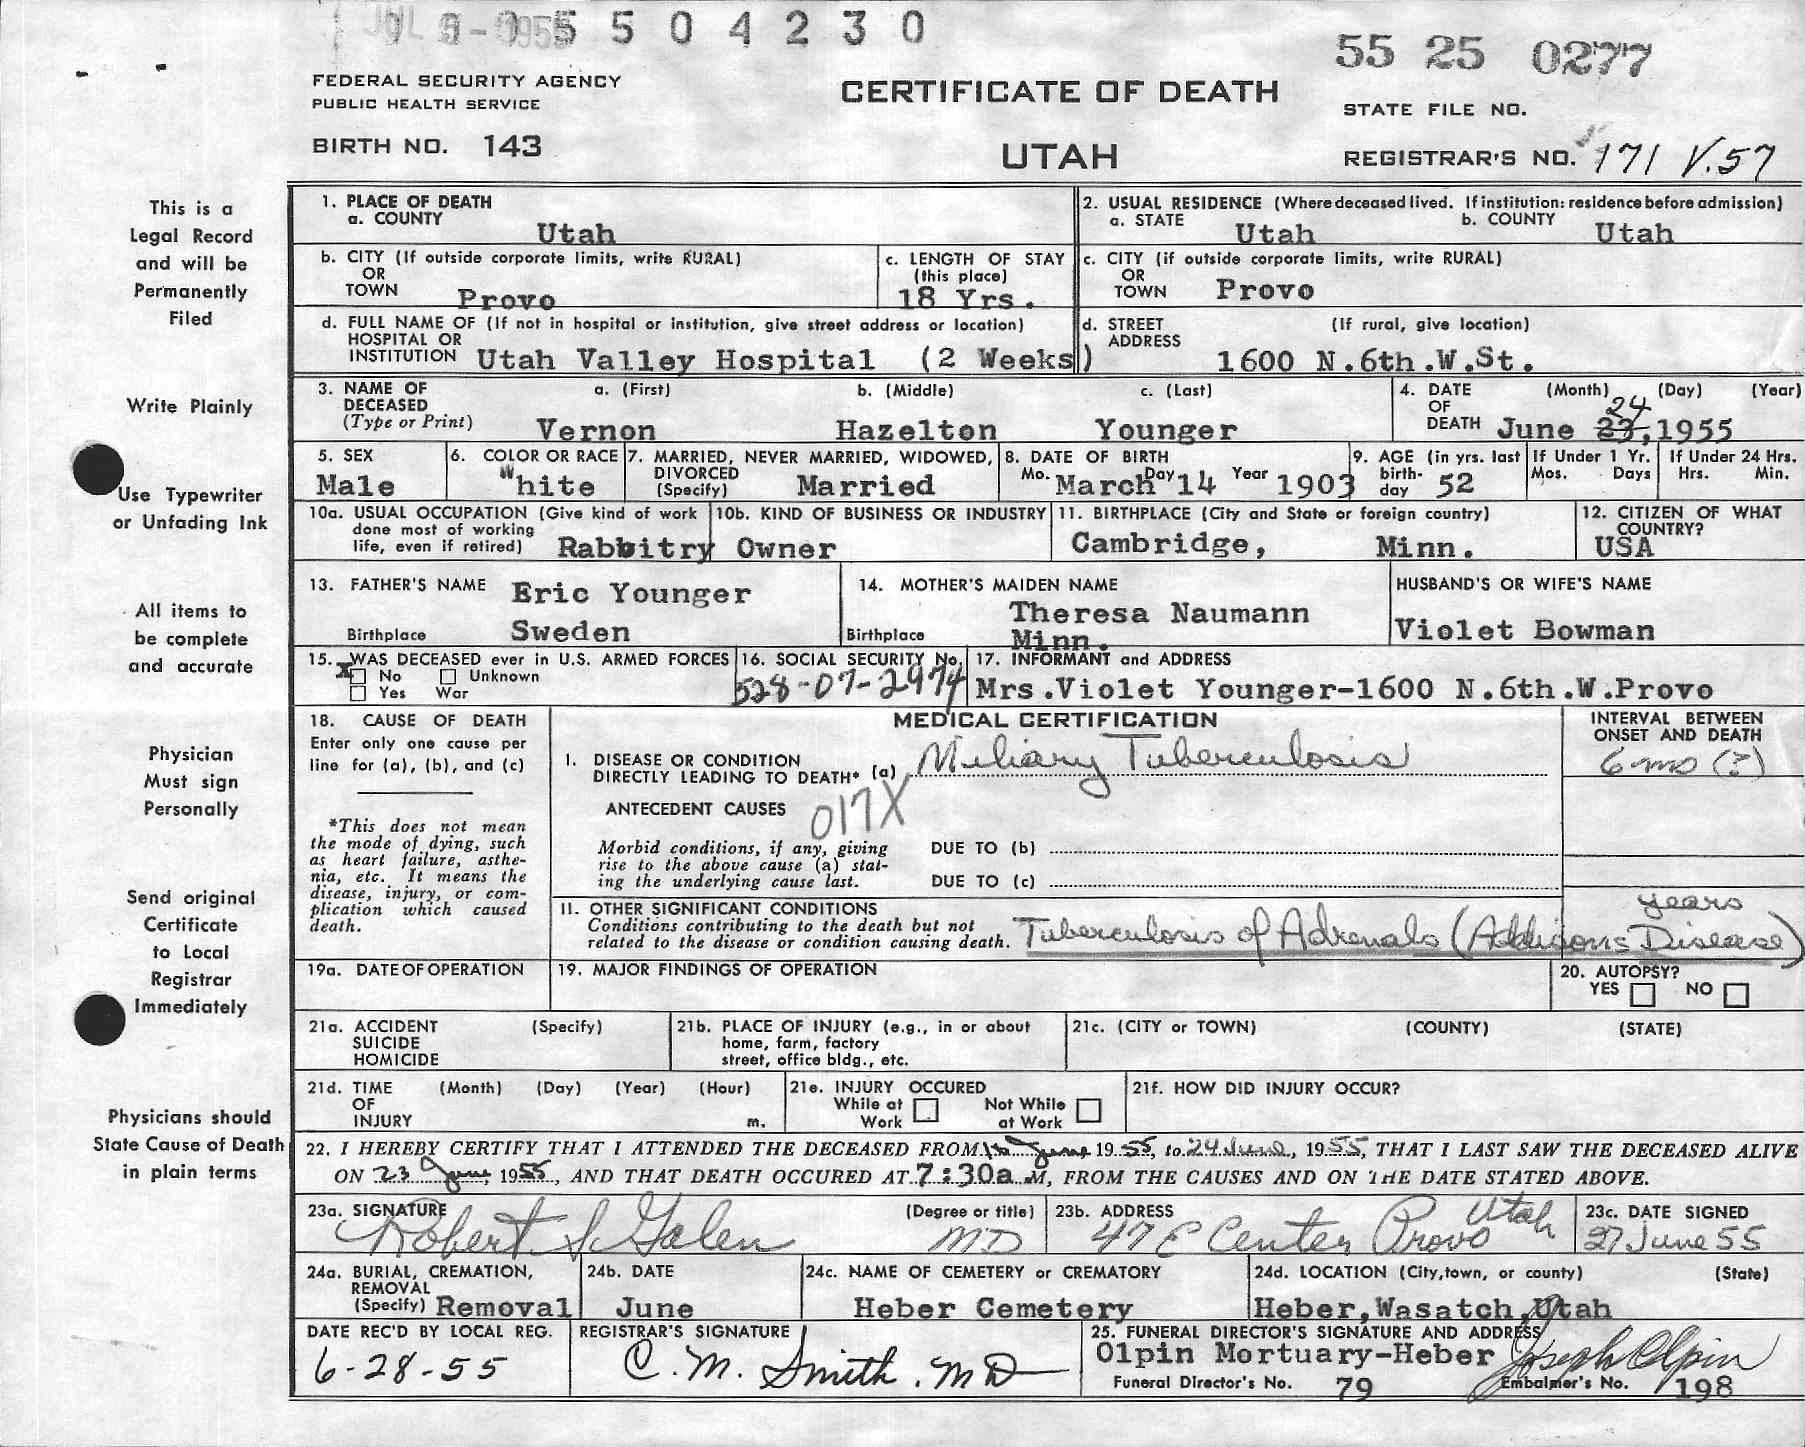 JUL 1955 5 0 4 2 3 0
55 25 0277
FEDERAL SECURITY AGENCY
PUBLIC HEALTH SERVICE
CERTIFICATE OF DEATH
STATE FILE NO.
BIRTH NO. 143
UTAH
REGISTRAR'S NO. 171 V.57
This is a
Legal Record
and will be
Permanently
Filed
Write Plainly
Use Typewriter
or Unfading Ink
All items to
be complete
and accurate
Physician
Must sign
Personally
Send original
Certificate
to Local
Registrar
Immediately
Physicians should
State Cause of Death
in plain terms
1. PLACE OF DEATH
a. COUNTY
Utah
2. USUAL RESIDENCE (Where deceased lived. If institution: residence before admission)
a. STATE Utah b. COUNTY Utah
b. CITY (If outside corporate limits, write RURAL)
OR
TOWN Provo
c. LENGTH OF STAY
(this place)
18 Yrs.
c. CITY (if outside corporate limits, write RURAL)
OR
TOWN Provo
d. FULL NAME OF (If not in hospital or institution, give street address or location)
HOSPITAL OR
INSTITUTION Utah Valley Hospital (2 Weeks)
d. STREET (If rural, give location)
ADDRESS
1600 N.6th.W.St.
3. NAME OF DECEASED
(Type or Print)
a. (First) b. (Middle) c. (Last)
Vernon Hazelton Younger
4. DATE (Month) (Day) (Year)
OF
DEATH June 23, 24 1955
5. SEX
Male
6. COLOR OR RACE
White
7. MARRIED, NEVER MARRIED, WIDOWED,
DIVORCED
(Specify) Married
8. DATE OF BIRTH
Mo. March Day 14 Year 1903
9. AGE (in yrs. last
birth-
day 52
If Under 1 Yr.
Mos. Days
If Under 24 Hrs.
Hrs. Min.
10a. USUAL OCCUPATION (Give kind of work
done most of working
life, even if retired)
10b. KIND OF BUSINESS OR INDUSTRY
Rabbitry Owner
11. BIRTHPLACE (City and State or foreign country)
Cambridge, Minn.
12. CITIZEN OF WHAT
COUNTRY?
USA
13. FATHER'S NAME Eric Younger
Birthplace Sweden
14. MOTHER'S MAIDEN NAME
Theresa Naumann
Birthplace Minn.
HUSBAND'S OR WIFE'S NAME
Violet Bowman
15. WAS DECEASED ever in U.S. ARMED FORCES
X No Unknown
Yes War
16. SOCIAL SECURITY No.
528-07-2974
17. INFORMANT and ADDRESS
Mrs.Violet Younger-1600 N.6th.W.Provo
18. CAUSE OF DEATH
Enter only one cause per
line for (a), (b), and (c)
*This does not mean
the mode of dying, such
as heart failure, asthe-
nia, etc. It means the
disease, injury, or com-
plication which caused
death.
MEDICAL CERTIFICATION
INTERVAL BETWEEN
ONSET AND DEATH
I. DISEASE OR CONDITION
DIRECTLY LEADING TO DEATH* (a) Miliary Tuberculosis
6 mo (?)
ANTECEDENT CAUSES
017X
Morbid conditions, if any, giving
rise to the above cause (a) stat-
ing the underlying cause last.
DUE TO (b)
DUE TO (c)
II. OTHER SIGNIFICANT CONDITIONS
Conditions contributing to the death but not
related to the disease or condition causing death.
Tuberculosis of Adrenals (Addisons Disease)
years
19a. DATE OF OPERATION
19. MAJOR FINDINGS OF OPERATION
20. AUTOPSY?
YES NO
21a. ACCIDENT (Specify)
SUICIDE
HOMICIDE
21b. PLACE OF INJURY (e.g., in or about
home, farm, factory
street, office bldg., etc.
21c. (CITY or TOWN) (COUNTY) (STATE)
21d. TIME (Month) (Day) (Year) (Hour)
OF
INJURY m.
21e. INJURY OCCURED
While at Work Not While at Work
21f. HOW DID INJURY OCCUR?
22. I HEREBY CERTIFY THAT I ATTENDED THE DECEASED FROM June 1955, to 24 June, 1955, THAT I LAST SAW THE DECEASED ALIVE
ON 23 June, 1955, AND THAT DEATH OCCURED AT 7:30a M, FROM THE CAUSES AND ON THE DATE STATED ABOVE.
23a. SIGNATURE (Degree or title)
Robert S Galen MD
23b. ADDRESS
47 E Center Provo Utah
23c. DATE SIGNED
27 June 55
24a. BURIAL, CREMATION,
REMOVAL
(Specify) Removal
24b. DATE
June
24c. NAME OF CEMETERY or CREMATORY
Heber Cemetery
24d. LOCATION (City,town, or county) (State)
Heber,Wasatch,Utah
DATE REC'D BY LOCAL REG.
6-28-55
REGISTRAR'S SIGNATURE
C. M. Smith, MD
25. FUNERAL DIRECTOR'S SIGNATURE AND ADDRESS
Olpin Mortuary-Heber Joseph Olpin
Funeral Director's No. 79 Embalmer's No. 198